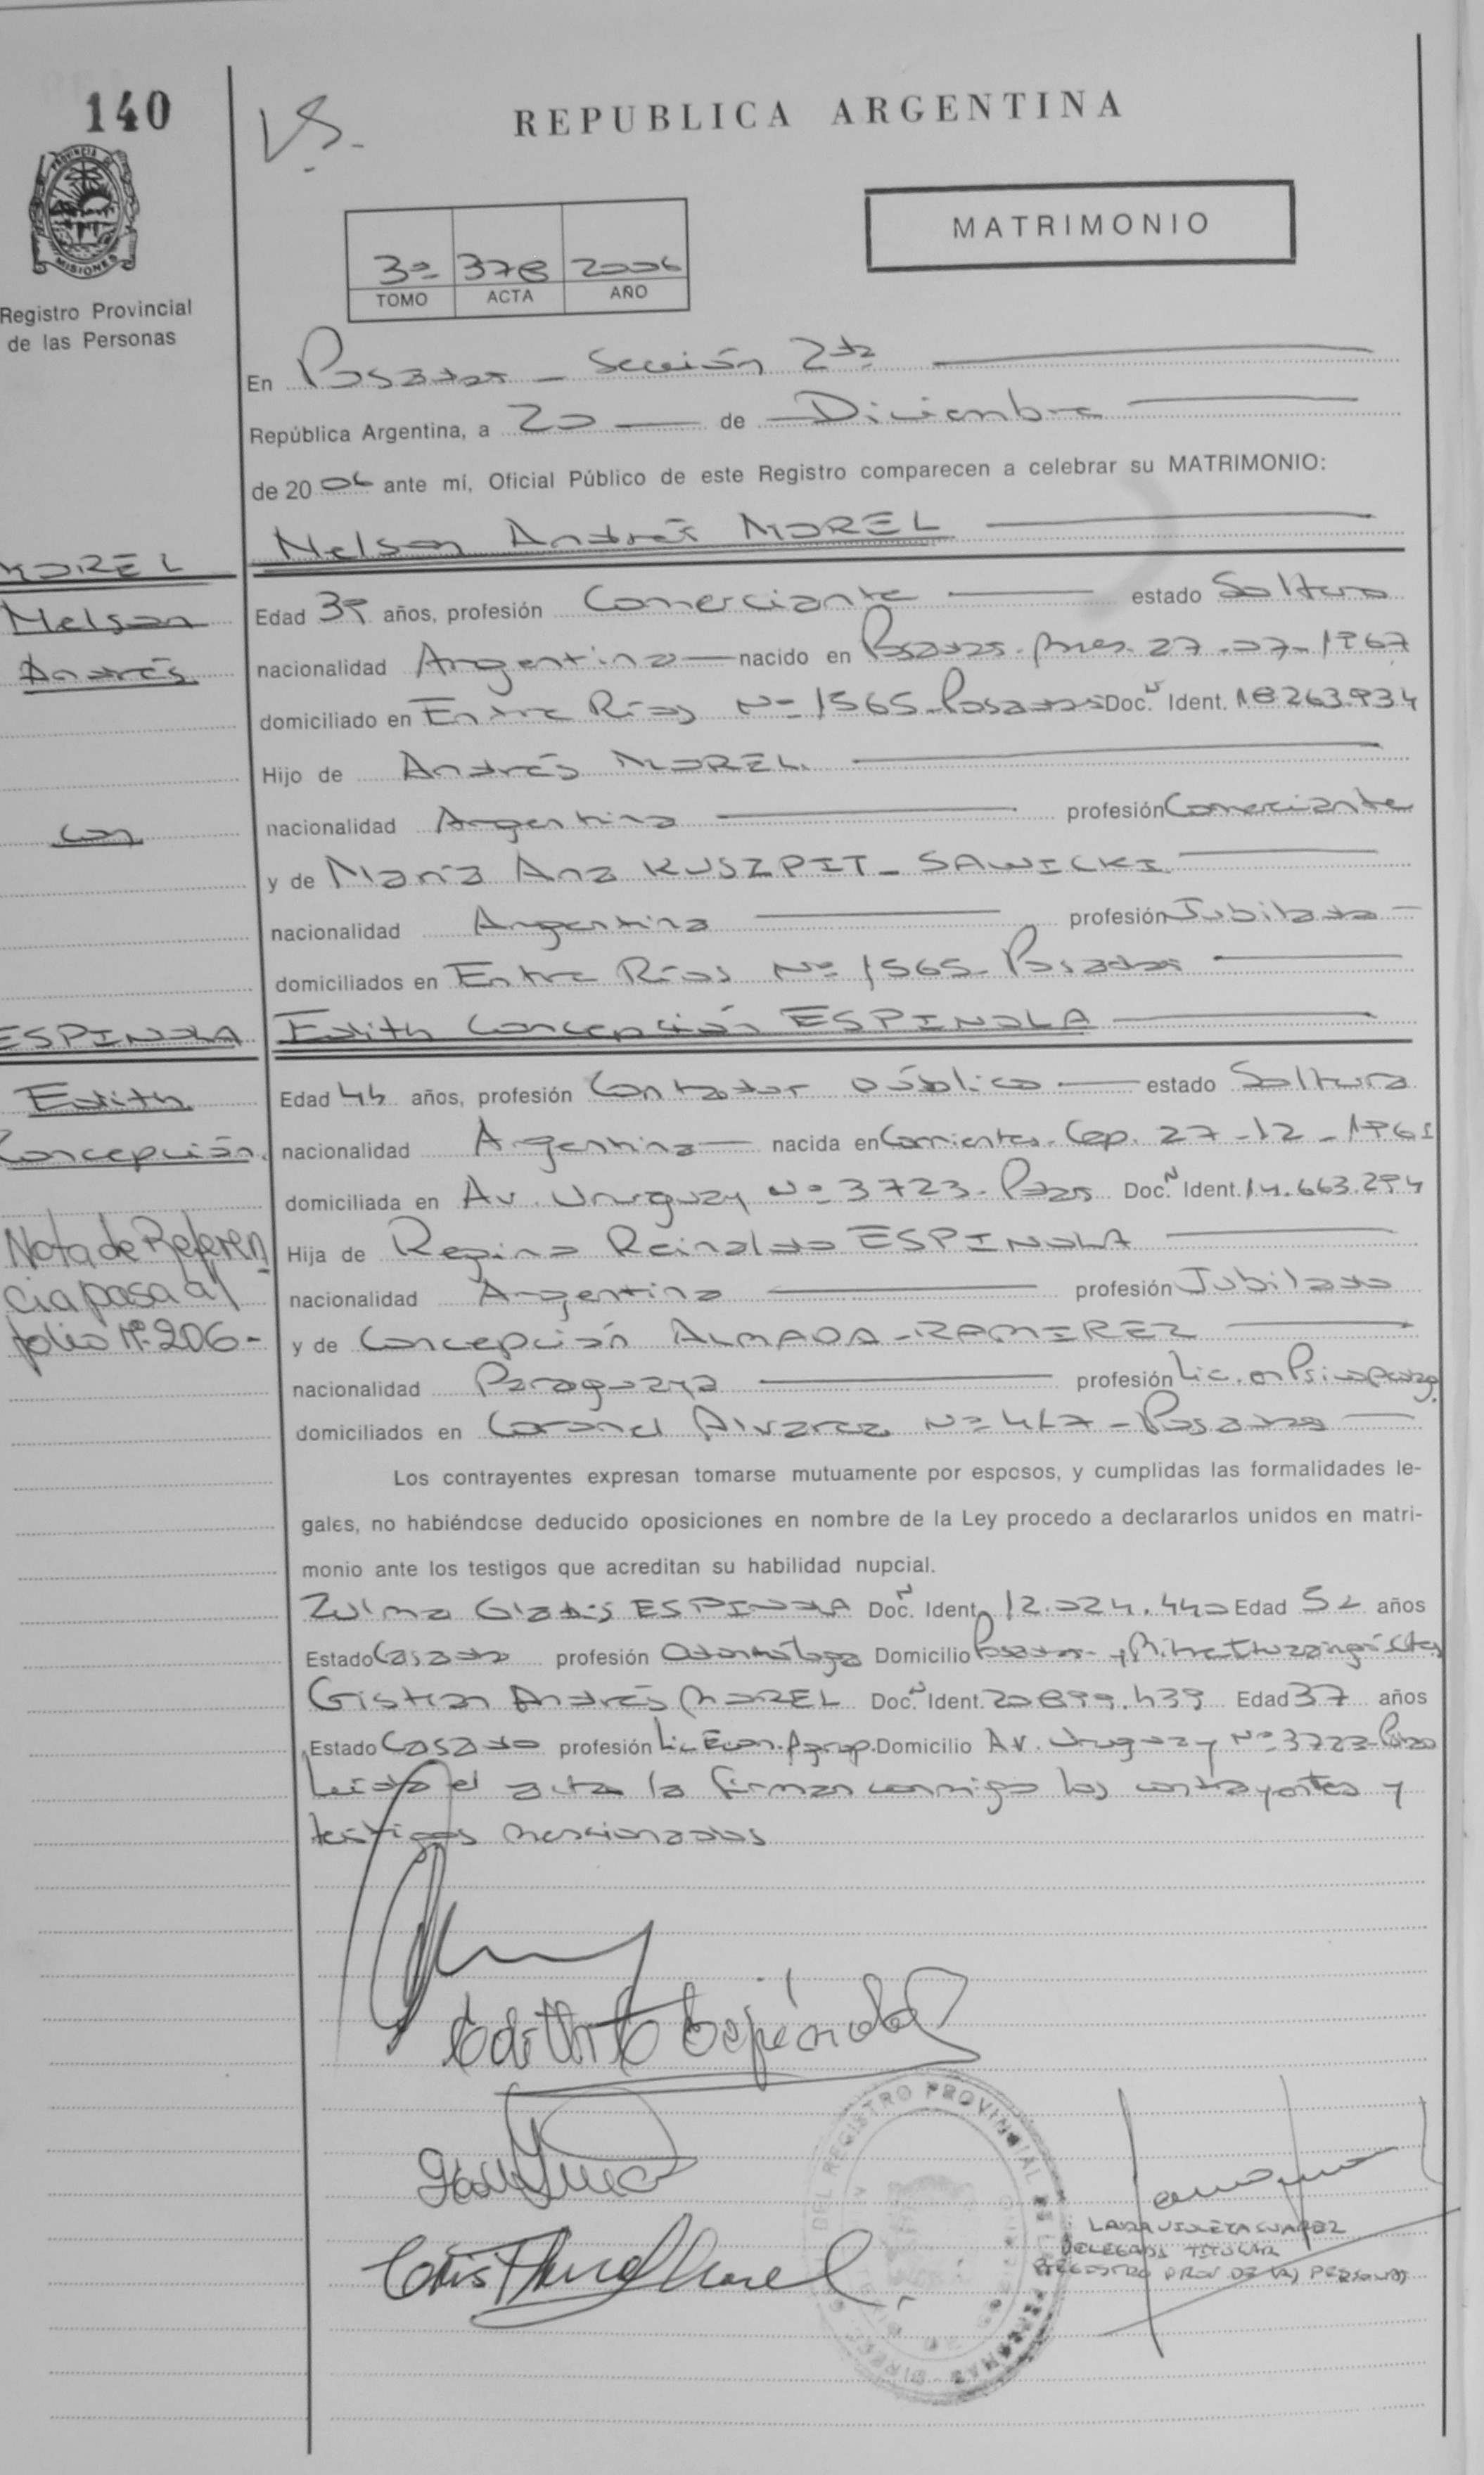 140
V.S.
REPUBLICA ARGENTINA
MATRIMONIO
PROVINCIA DE
MISIONES
3º 378 2006
TOMO ACTA AÑO
Registro Provincial
de las Personas
En Posadas - Sección 2da
República Argentina, a 20 de Diciembre
de 2006 ante mí, Oficial Público de este Registro comparecen a celebrar su MATRIMONIO:
Nelson Andrés MOREL
MOREL
Nelson
Andrés
Edad 39 años, profesión Comerciante estado Soltero
nacionalidad Argentina nacido en Posadas. Mnes. 27-07-1967
domiciliado en Entre Ríos Nº 1565 - Posadas Doc. N Ident. 18.263.934
Hijo de Andrés MOREL
con
nacionalidad Argentina profesión Comerciante
y de María Ana KUSZPIT - SAWICKI
nacionalidad Argentina profesión Jubilada
domiciliados en Entre Ríos Nº 1565 - Posadas
ESPINOLA
Edith Concepción ESPINOLA
Edith
Concepción.
Edad 44 años, profesión Contador Público estado Soltera
nacionalidad Argentina nacida en Corrientes. Cap. 27-12-1961
domiciliada en Av. Uruguay Nº 3723 - Pdas Doc. N Ident. 14.663.294
Nota de Referen
cia pasa al
folio Nº 206-
Hija de Regino Reinaldo ESPINOLA
nacionalidad Argentina profesión Jubilado
y de Concepción ALMADA - RAMIREZ
nacionalidad Paraguaya profesión Lic. en
domiciliados en Coronel Alvarez Nº 467 - Posadas
Los contrayentes expresan tomarse mutuamente por esposos, y cumplidas las formalidades le-
gales, no habiéndose deducido oposiciones en nombre de la Ley procedo a declararlos unidos en matri-
monio ante los testigos que acreditan su habilidad nupcial.
Zulma Gladis ESPINOLA Doc. N Ident. 12.024.440 Edad 52 años
Estado Casada profesión Odontóloga Domicilio
Cristian Andrés MOREL Doc. N Ident. 20.899.439 Edad 37 años
Estado Casado profesión Lic. Econ. Agrop. Domicilio Av. Uruguay Nº 3723 - Pdas
Leída el acta la firman conmigo los contrayentes y
testigos mencionados
Edith C Espínola
Cris Andrés Morel
DEL REGISTRO PROVINCIAL DE LAS PERSONAS
LAURA VIOLETA SUAREZ
DELEGADA TITULAR
REGISTRO PROV. DE LAS PERSONAS